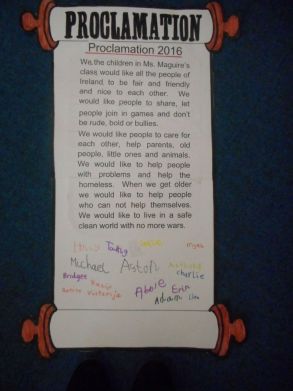 PROCLAMATION
Proclamation 2016
We, the children in Ms. Maguire's
class would like all the people of
Ireland, to be fair and friendly
and nice to each other. We
would like people to share, let
people join in games and don't
be rude, bold or bullies.
We would like people to care for
each other, help parents, old
people, little ones and animals.
We would like to help people
with problems and help the
homeless. When we get older
we would like to help people
who can not help themselves.
We would like to live in a safe
clean world with no more wars.
Michael Aston
Charlie
Bridget
Abbie Erin